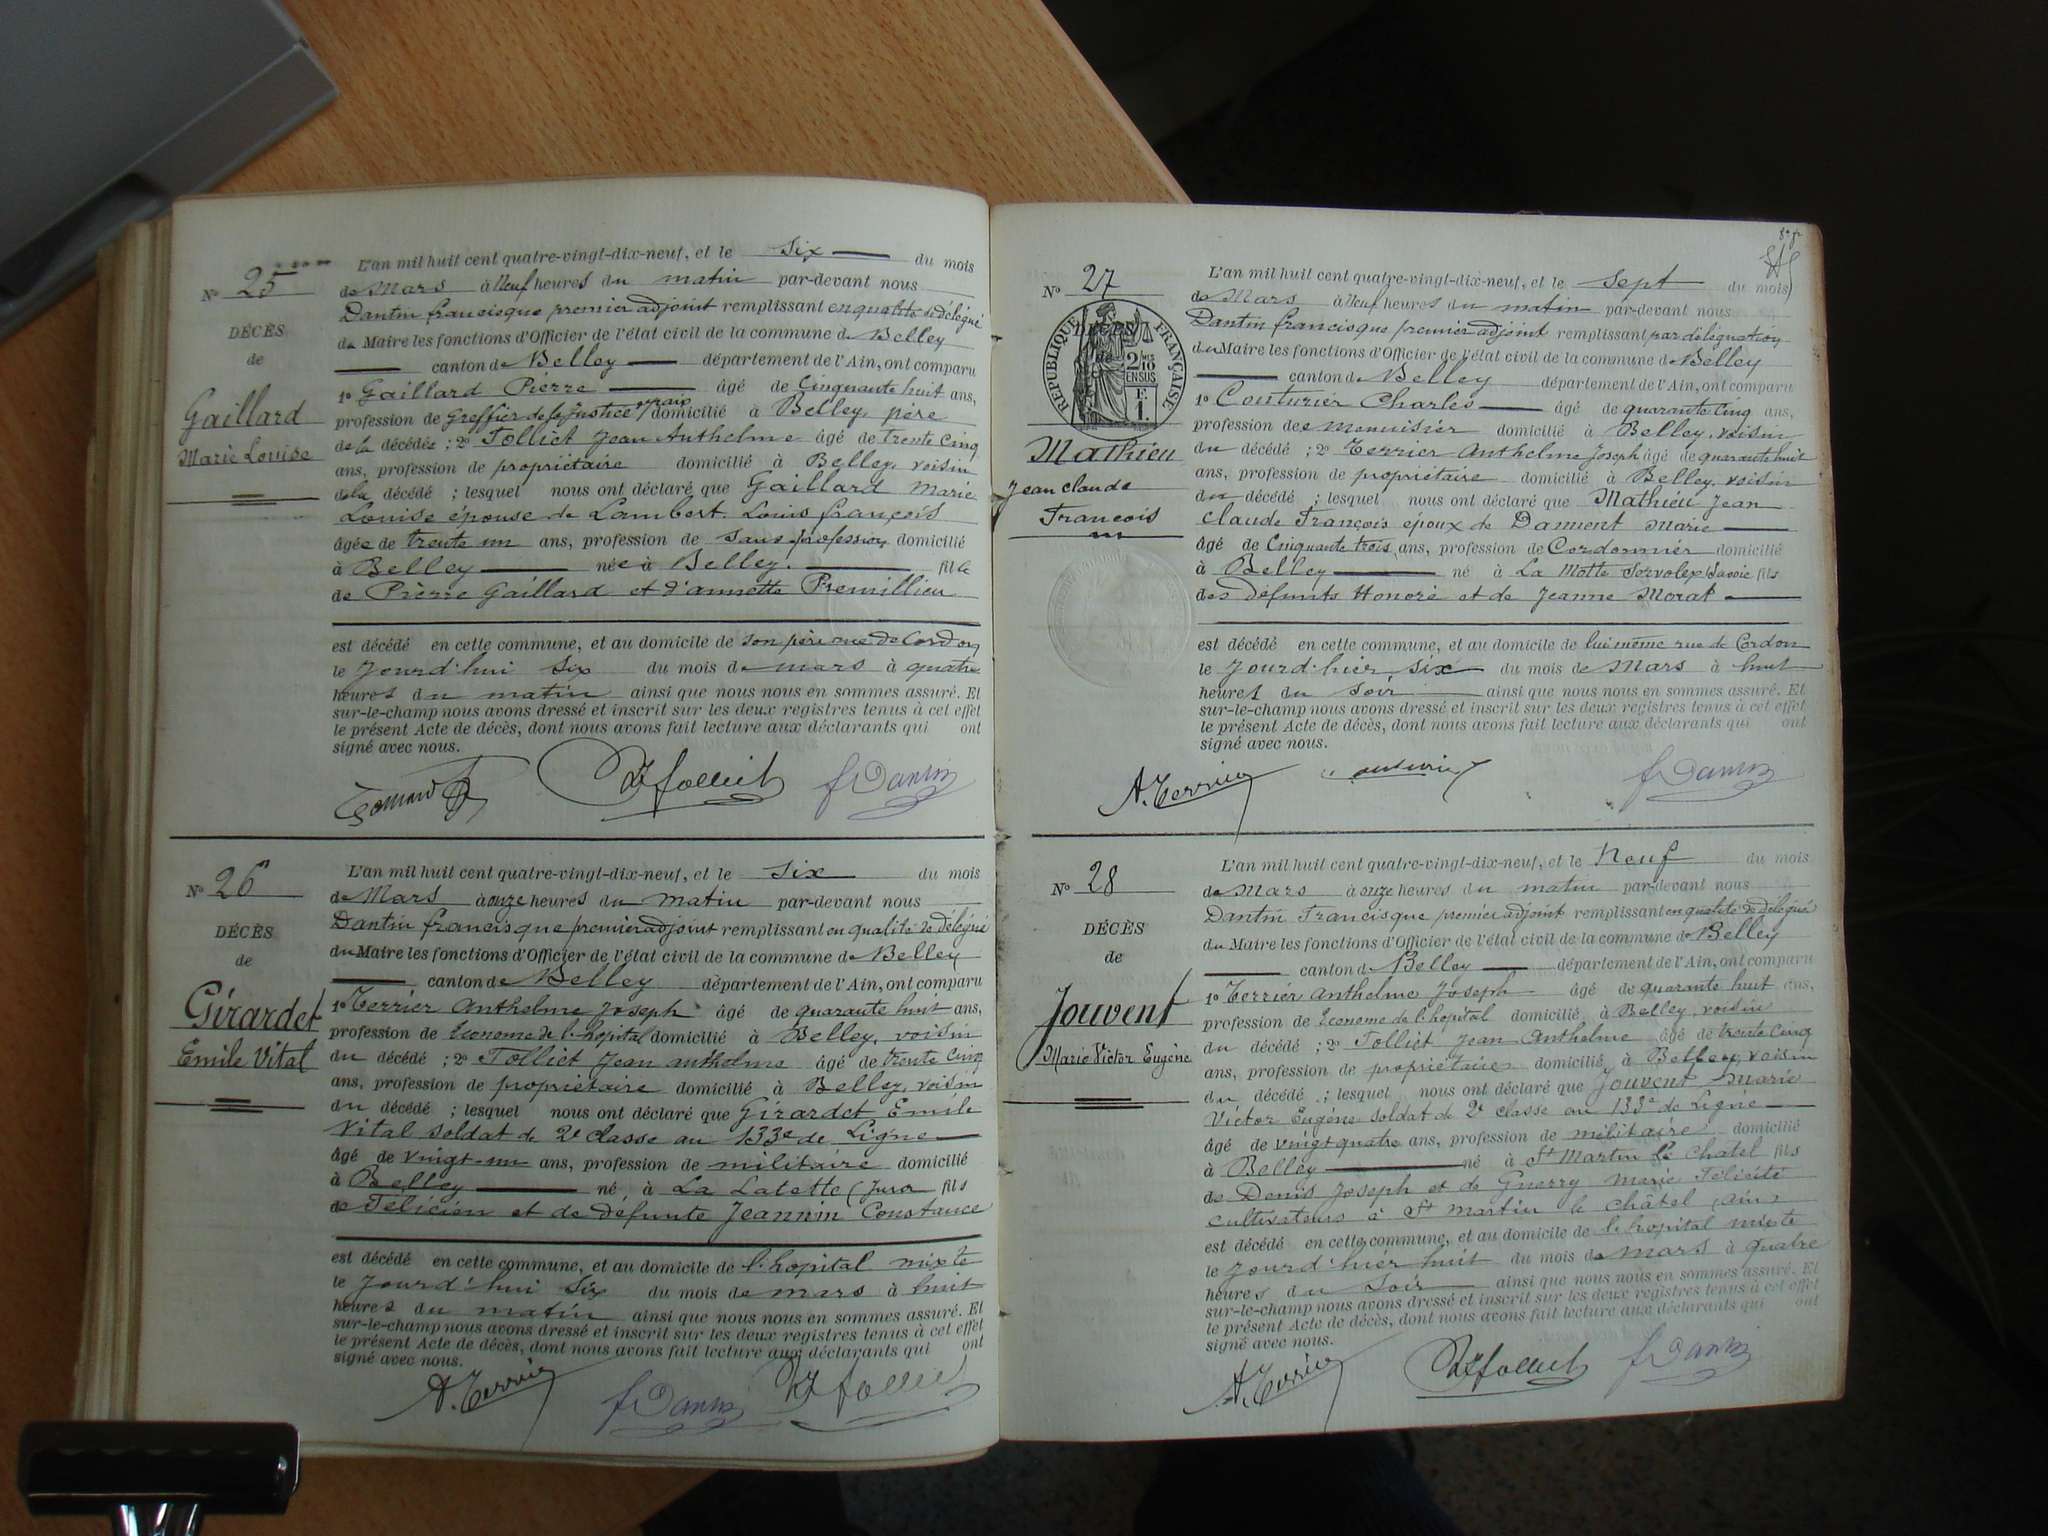 N° 25
DÉCÈS
de
Gaillard
Marie Louise
L'an mil huit cent quatre-vingt-dix-neuf, et le six du mois
de Mars à Neuf heures du matin par-devant nous
Dantin francisque premier adjoint remplissant en qualité de délégué
du Maire les fonctions d'Officier de l'état civil de la commune de Belley
canton de Belley département de l'Ain, ont comparu
1° Gaillard Pierre âgé de Cinquante huit ans,
profession de Greffier de la Justice de paix domicilié à Belley, père
de la décédée ; 2° Tolliet Jean Anthelme âgé de trente cinq
ans, profession de propriétaire domicilié à Belley, voisin
de la décédé ; lesquel nous ont déclaré que Gaillard Marie
Louise épouse de Lambert Louis françois
âgée de trente un ans, profession de sans profession domicilié
à Belley née à Belley. fille
de Pierre Gaillard et d'annette Premillieu
est décédé en cette commune, et au domicile de son père rue de Cordon
le Jourd'hui six du mois de mars à quatre
heures du matin ainsi que nous nous en sommes assuré. Et
sur-le-champ nous avons dressé et inscrit sur les deux registres tenus à cet effet
le présent Acte de décès, dont nous avons fait lecture aux déclarants qui ont
signé avec nous.
Tolliet fDantin
N° 26
DÉCÈS
de
Girardet
Emile Vital
L'an mil huit cent quatre-vingt-dix-neuf, et le six du mois
de Mars à onze heures du matin par-devant nous
Dantin francisque premier adjoint remplissant en qualité de délégué
du Maire les fonctions d'Officier de l'état civil de la commune de Belley
canton de Belley département de l'Ain, ont comparu
1° Terrier Anthelme Joseph âgé de quarante huit ans,
profession de Econome de l'hopital domicilié à Belley, voisin
du décédé ; 2° Tolliet Jean anthelme âgé de trente cinq
ans, profession de propriétaire domicilié à Belley, voisin
du décédé ; lesquel nous ont déclaré que Girardet Emile
Vital soldat de 2e classe au 133e de Ligne
âgé de vingt-un ans, profession de militaire domicilié
à Belley né à La Latette (Jura fils
de Félicien et de défunte Jeannin Constance
est décédé en cette commune, et au domicile de l'hopital mixte
le Jourd'hui six du mois de mars à huit
heures du matin ainsi que nous nous en sommes assuré. Et
sur-le-champ nous avons dressé et inscrit sur les deux registres tenus à cet effet
le présent Acte de décès, dont nous avons fait lecture aux déclarants qui ont
signé avec nous.
A. Terrier fDantin Tolliet
N° 27
DÉCÈS
de
RÉPUBLIQUE FRANÇAISE
2/10
EN SUS
F.
1.
Mathieu
Jean Claude
François
L'an mil huit cent quatre-vingt-dix-neuf, et le sept du mois
de Mars à Neuf heures du matin par-devant nous
Dantin francisque premier adjoint remplissant par délégation
du Maire les fonctions d'Officier de l'état civil de la commune de Belley
canton de Belley département de l'Ain, ont comparu
1° Couturier Charles âgé de quarante cinq ans,
profession de menuisier domicilié à Belley, voisin
du décédé ; 2° Terrier Anthelme Joseph âgé de quarante huit
ans, profession de propriétaire domicilié à Belley, voisin
du décédé ; lesquel nous ont déclaré que Mathieu Jean
Claude François époux de Dament Marie
âgé de Cinquante trois ans, profession de Cordonnier domicilié
à Belley né à La Motte Servolex (Savoie fils
des défunts Honoré et de Jeanne Morat
est décédé en cette commune, et au domicile de lui même rue de Cordon
le Jourd'hier six du mois de Mars à huit
heures du soir ainsi que nous nous en sommes assuré. Et
sur-le-champ nous avons dressé et inscrit sur les deux registres tenus à cet effet
le présent Acte de décès, dont nous avons fait lecture aux déclarants qui ont
signé avec nous.
A. Terrier Couturier fDantin
N° 28
DÉCÈS
de
Jouvent
Marie Victor Eugène
L'an mil huit cent quatre-vingt-dix-neuf, et le Neuf du mois
de Mars à onze heures du matin par-devant nous
Dantin Francisque premier adjoint remplissant en qualité de délégué
du Maire les fonctions d'Officier de l'état civil de la commune de Belley
canton de Belley département de l'Ain, ont comparu
1° Terrier anthelme Joseph âgé de quarante huit ans,
profession de Econome de l'hopital domicilié à Belley, voisin
du décédé ; 2° Tolliet Jean Anthelme âgé de trente cinq
ans, profession de propriétaire domicilié à Belley, voisin
du décédé ; lesquel nous ont déclaré que Jouvent Marie
Victor Eugène soldat de 2e classe au 133e de Ligne
âgé de vingt quatre ans, profession de militaire domicilié
à Belley né à St Martin le Chatel fils
de Denis Joseph et de Guerry Marie Félicité
cultivateurs à St Martin le Châtel (ain)
est décédé en cette commune, et au domicile de l'hopital mixte
le jourd'hier huit du mois de mars à quatre
heures du soir ainsi que nous nous en sommes assuré. Et
sur-le-champ nous avons dressé et inscrit sur les deux registres tenus à cet effet
le présent Acte de décès, dont nous avons fait lecture aux déclarants qui ont
signé avec nous.
A. Terrier Tolliet fDantin